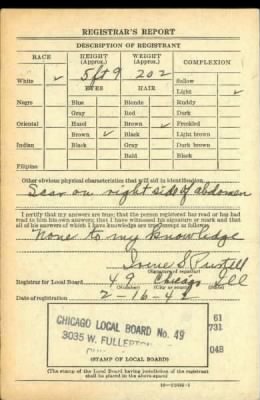 REGISTRAR'S REPORT
DESCRIPTION OF REGISTRANT
RACE HEIGHT (Approx.) WEIGHT (Approx.) COMPLEXION
White ✓ 5 ft 9 202 Sallow
EYES HAIR Light ✓
Negro Blue Blonde Ruddy
Gray Red Dark
Oriental Hazel Brown ✓ Freckled
Brown ✓ Black Light brown
Indian Black Gray Dark brown
Bald Black
Filipino
Other obvious physical characteristics that will aid in identification
Scar on right side of abdomen
I certify that my answers are true; that the person registered has read or has had
read to him his own answers; that I have witnessed his signature or mark and that
all of his answers of which I have knowledge are true, except as follows:
None to my knowledge
Irene S
(Signature of registrar)
Registrar for Local Board 49 Chicago Ill
Date of registration 2-16-42
CHICAGO LOCAL BOARD No. 49
3035 W. FULLERTON
61
731
04B
(STAMP OF LOCAL BOARD)
(The stamp of the Local Board having jurisdiction of the registrant
shall be placed in the above space)